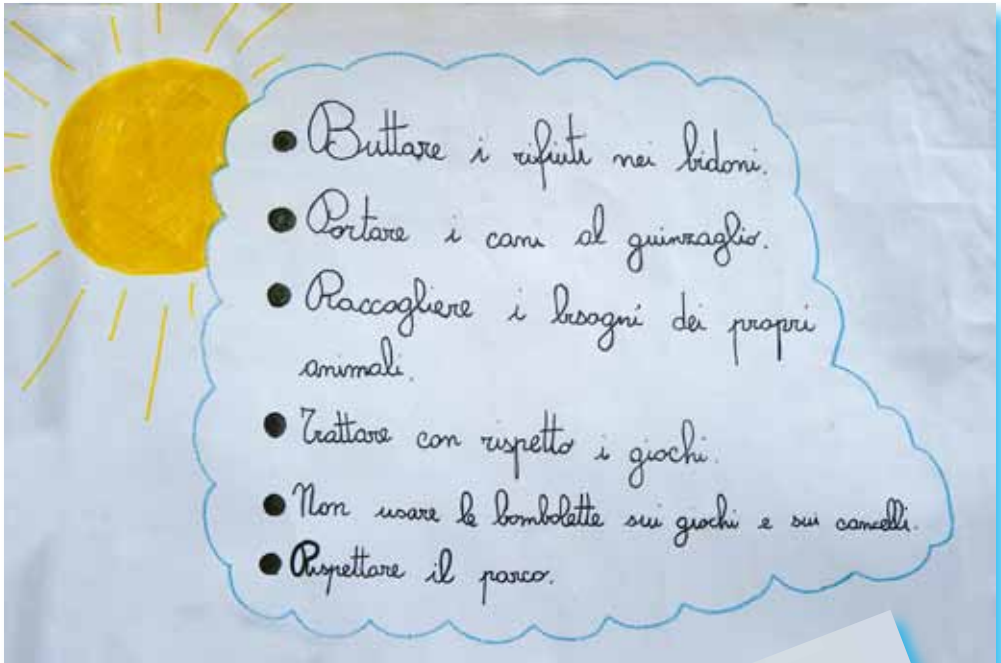 ● Buttare i rifiuti nei bidoni.
● Portare i cani al guinzaglio.
● Raccogliere i bisogni dei propri
animali.
● Trattare con rispetto i giochi.
● Non usare le bombolette sui giochi e sui cancelli.
● Rispettare il parco.